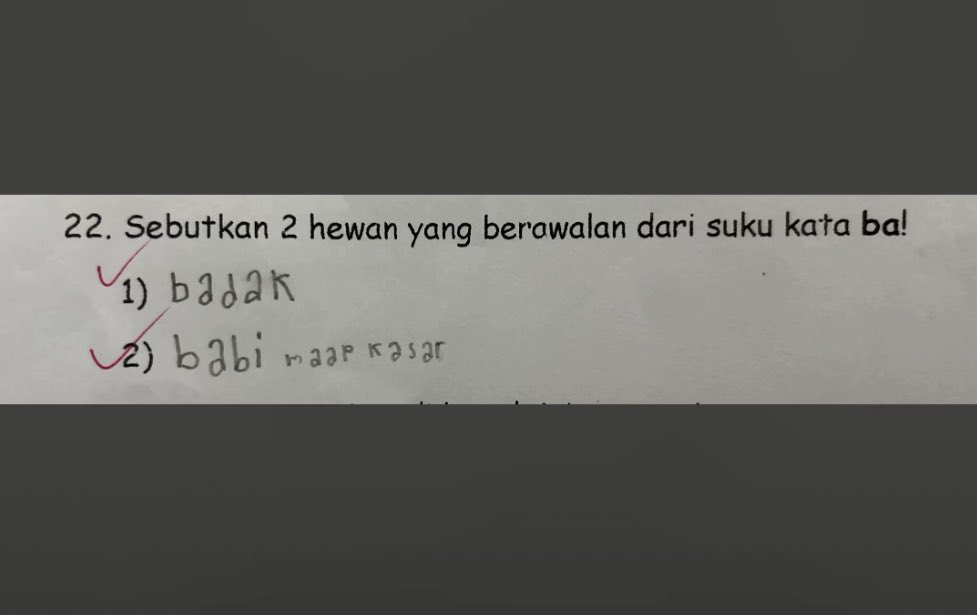 22. Sebutkan 2 hewan yang berawalan dari suku kata ba!
1) badak
2) babi maap kasar